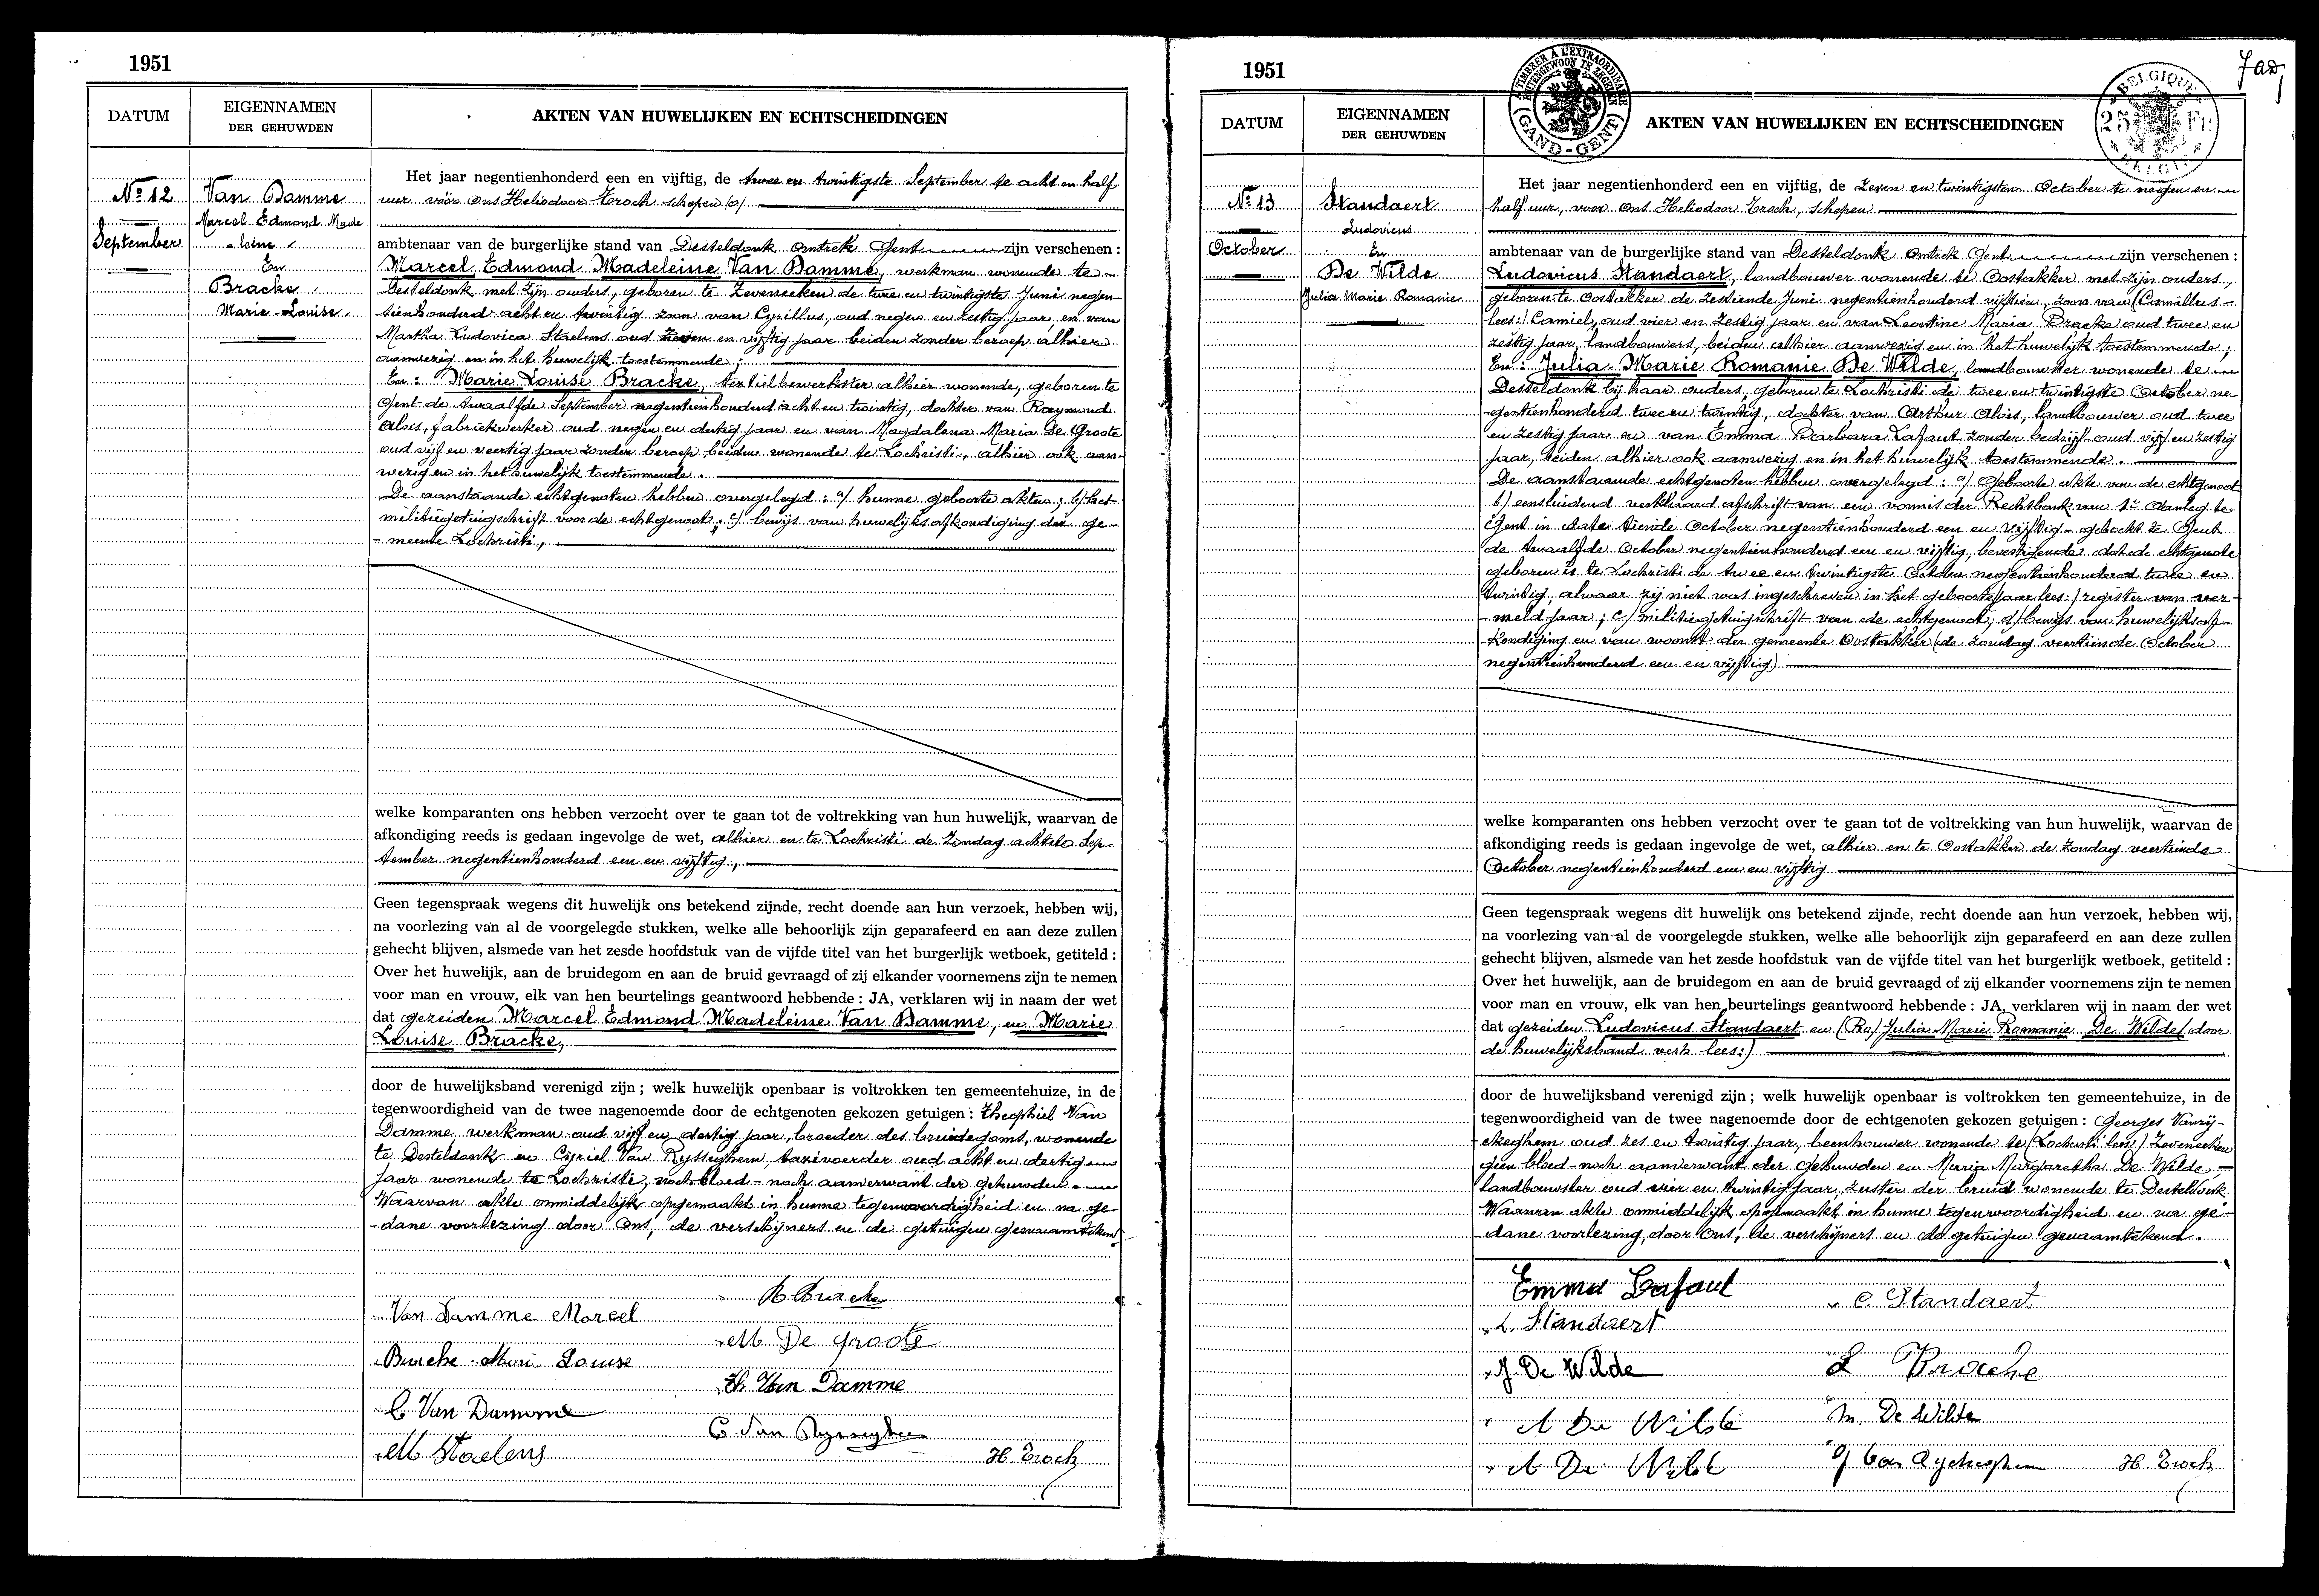 1951
DATUM
EIGENNAMEN
DER GEHUWDEN
AKTEN VAN HUWELIJKEN EN ECHTSCHEIDINGEN
Nº 12
September
Van Damme
Marcel Edmond Made
leine
En
Bracke
Marie-Louise
Het jaar negentienhonderd een en vijftig, de twee en twintigste September te acht en half
uur vóór ons Heliodoor Troch schepen (a)
ambtenaar van de burgerlijke stand van Desteldonk Omtrek Gent zijn verschenen :
Marcel Edmond Madeleine Van Damme, werkman wonende te
Desteldonk met zijn ouders, geboren te Zeveneeken de twee en twintigste Juni negen-
tienhonderd acht en twintig zoon van Cyrillus, oud negen en zestig jaar, en van
Martha Ludovica Staelens oud zeven en vijftig jaar beiden zonder beroep alhier
aanwezig en in het huwelijk toestemmende ;
En : Marie Louise Bracke, textielbewerkster alhier wonende, geboren te
Gent de twaalfde September negentienhonderd acht en twintig, dochter van Raymond
Aloïs, fabriekwerker oud negen en dertig jaar en van Magdalena Maria De Groote
oud vijf en veertig jaar zonder beroep beiden wonende te Lochristi, alhier ook aan-
wezig en in het huwelijk toestemmende.
De aanstaande echtgenoten hebben overgelegd : a/ hunne geboorte akten ; b/ het
militiegetuigschrift voor de echtgenoot ; c/ bewijs van huwelijksafkondiging der ge-
-meente Lochristi,
welke komparanten ons hebben verzocht over te gaan tot de voltrekking van hun huwelijk, waarvan de
afkondiging reeds is gedaan ingevolge de wet, alhier en te Lochristi de Zondag achtste Sep-
tember negentienhonderd een en vijftig,
Geen tegenspraak wegens dit huwelijk ons betekend zijnde, recht doende aan hun verzoek, hebben wij,
na voorlezing van al de voorgelegde stukken, welke alle behoorlijk zijn geparafeerd en aan deze zullen
gehecht blijven, alsmede van het zesde hoofdstuk van de vijfde titel van het burgerlijk wetboek, getiteld :
Over het huwelijk, aan de bruidegom en aan de bruid gevraagd of zij elkander voornemens zijn te nemen
voor man en vrouw, elk van hen beurtelings geantwoord hebbende : JA, verklaren wij in naam der wet
dat gezeiden Marcel Edmond Madeleine Van Damme, en Marie
Louise Bracke,
door de huwelijksband verenigd zijn ; welk huwelijk openbaar is voltrokken ten gemeentehuize, in de
tegenwoordigheid van de twee nagenoemde door de echtgenoten gekozen getuigen : Theophiel Van
Damme werkman oud vijf en dertig jaar, broeder des bruidegoms, wonende
te Desteldonk en Cyriel Van Rysseghem, taxivoerder oud acht en dertig
jaar wonende te Lochristi, noch bloed- noch aanverwant der gehuwden.
Waarvan akte onmiddelijk opgemaakt in hunne tegenwoordigheid en na ge-
-dane voorlezing door Ons, de verschijners en de getuigen genaamtekend
Van Damme Marcel
R Bracke
M De Groote
Bracke Marie Louise
Th Van Damme
C Van Damme
C Van Rysseghem
M Staelens
H. Troch
1951
A TIMBRER A L'EXTRAORDINAIRE
BUITENGEWOON TE ZEGELEN
GAND-GENT
BELGIQUE
25 Fr
BELGIE
DATUM
EIGENNAMEN
DER GEHUWDEN
AKTEN VAN HUWELIJKEN EN ECHTSCHEIDINGEN
Nº 13
October
Standaert
Ludovicus
En
De Wilde
Julia Marie Romanie
Het jaar negentienhonderd een en vijftig, de zeven en twintigsten October te negen en
half uur, voor ons Heliodoor Troch, schepen
ambtenaar van de burgerlijke stand van Desteldonk Omtrek Gent zijn verschenen :
Ludovicus Standaert, landbouwer wonende te Oostakker met zijn ouders,
geboren te Oostakker de zestiende Juni negentienhonderd vijftien, zoon van (Camillus-
lees:) Camiel, oud vier en zestig jaar en van Leontine Maria Bracke oud twee en
zestig jaar, landbouwers, beiden alhier aanwezig en in het huwelijk toestemmende ;
En : Julia Marie Romanie De Wilde, landbouwster wonende te
Desteldonk bij haar ouders, geboren te Lochristi de twee en twintigste October ne-
-gentienhonderd twee en twintig, dochter van Arthur Aloïs, landbouwer oud twee
en zestig jaar en van Emma Barbara Lafaut zonder bedrijf oud vijf en zestig
jaar, beiden alhier ook aanwezig en in het huwelijk toestemmende.
De aanstaande echtgenoten hebben overgelegd : a/ Geboorte akte van de echtgenoot
b/ eensluidend verklaard afschrift van een vonnis der Rechtbank van 1e Aanleg te
Gent in date tiende October negentienhonderd een en vijftig - geboekt te Gent
de twaalfde October negentienhonderd een en vijftig, bevestigende dat de echtgenote
geboren is te Lochristi de twee en twintigste October negentienhonderd twee en
twintig, alwaar zij niet was ingeschreven in het geboorte(jaar lees:) register van ver-
-meld jaar ; c/ militiegetuigschrift van de echtgenoot ; d/ bewijs van huwelijksaf-
-kondiging en van woonst der gemeente Oostakker (de zondag veertiende October
negentienhonderd een en vijftig)
welke komparanten ons hebben verzocht over te gaan tot de voltrekking van hun huwelijk, waarvan de
afkondiging reeds is gedaan ingevolge de wet, alhier en te Oostakker de Zondag veertiende
October negentienhonderd een en vijftig
Geen tegenspraak wegens dit huwelijk ons betekend zijnde, recht doende aan hun verzoek, hebben wij,
na voorlezing van al de voorgelegde stukken, welke alle behoorlijk zijn geparafeerd en aan deze zullen
gehecht blijven, alsmede van het zesde hoofdstuk van de vijfde titel van het burgerlijk wetboek, getiteld :
Over het huwelijk, aan de bruidegom en aan de bruid gevraagd of zij elkander voornemens zijn te nemen
voor man en vrouw, elk van hen beurtelings geantwoord hebbende : JA, verklaren wij in naam der wet
dat gezeiden Ludovicus Standaert en (Ro) Julia Marie Romanie De Wilde (door
de huwelijksband verh lees:)
door de huwelijksband verenigd zijn ; welk huwelijk openbaar is voltrokken ten gemeentehuize, in de
tegenwoordigheid van de twee nagenoemde door de echtgenoten gekozen getuigen : Georges Vanrij-
-ckeghem oud zes en twintig jaar, beenhouwer wonende te (Lochristi lees) Zeveneeken
geen bloed-noch aanverwant der gehuwden en Maria Margaretha De Wilde
landbouwster oud vier en twintig jaar, zuster der bruid wonende te Desteldonk
Waarvan akte onmiddelijk opgemaakt in hunne tegenwoordigheid en na ge-
-dane voorlezing, door Ons, de verschijners en de getuigen genaamtekend.
Emma Lafaut
C. Standaert
L. Standaert
J. De Wilde
L Bracke
A De Wilde
M. De Wilde
A De Wilde
G Van Ryckeghem
H. Troch